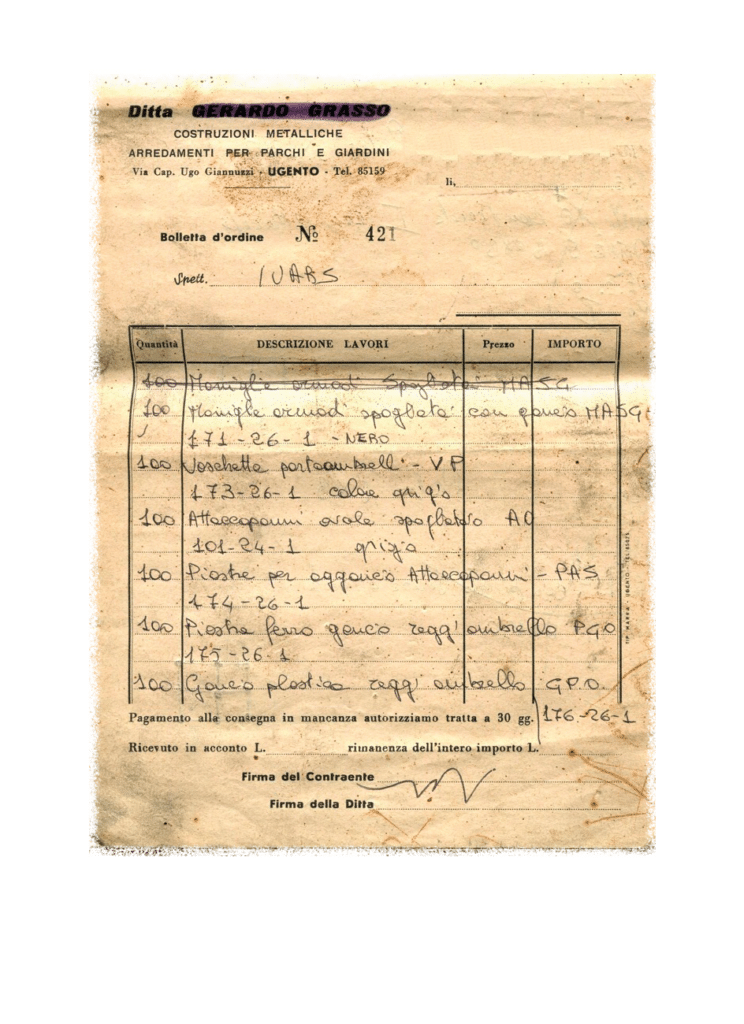 Ditta GERARDO GRASSO
COSTRUZIONI METALLICHE
ARREDAMENTI PER PARCHI E GIARDINI
Via Cap. Ugo Giannuzzi - UGENTO - Tel. 85159
li,
Bolletta d'ordine № 421
Spett. IVARS
Quantità DESCRIZIONE LAVORI Prezzo IMPORTO
100 Maniglie armadi Spogliatoi MASG
100 Maniglie armadi spogliatoi con gancio MASG
171-26-1 - NERO
100 Vaschette portaombrelli - VP
173-26-1 colore grigio
100 Attaccapanni ovale spogliatoio AO
101-24-1 grigio
100 Piastre per aggancio Attaccapanni - PAS
174-26-1
100 Piastra ferro gancio reggi ombrello PGO
175-26-1
100 Gancio plastica reggi ombrello G.P.O.
Pagamento alla consegna in mancanza autorizziamo tratta a 30 gg. 176-26-1
Ricevuto in acconto L. rimanenza dell'intero importo L.
Firma del Contraente
Firma della Ditta